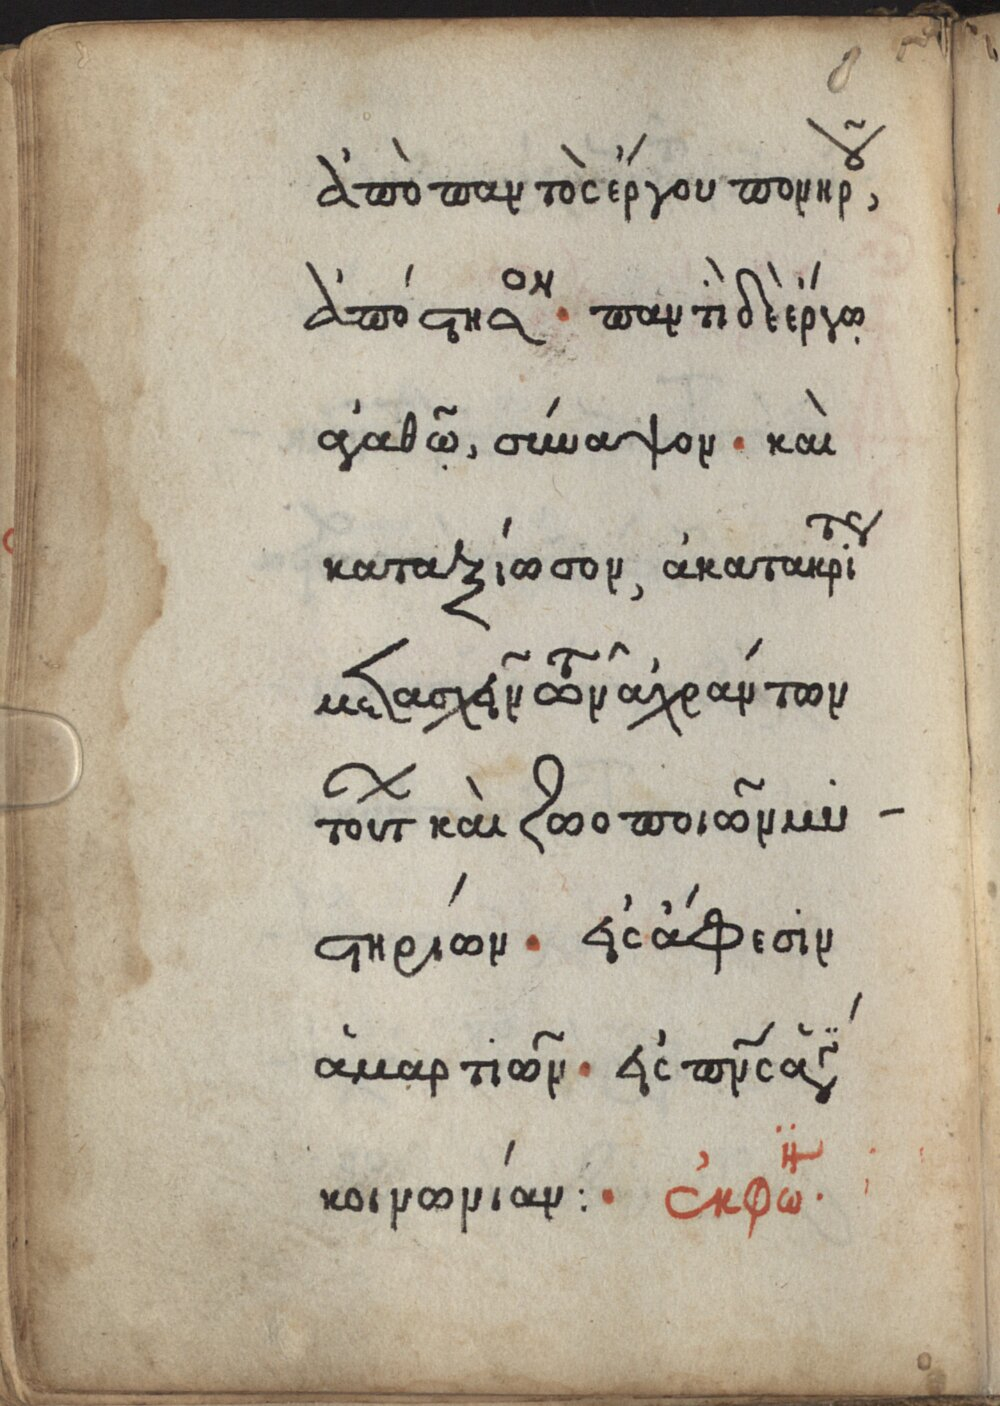 ἀπὸ παντὸς ἔργου πονηροῦ,
ἀπόστησον · παντὶ δὲ ἔργῳ
ἀγαθῷ, σύναψον · καὶ
καταξίωσον, ἀκατακρίτους
μετασχεῖν τῶν ἀχράντων
τούτων καὶ ζωοποιῶν μυ-
στηρίων · εἰς ἄφεσιν
ἁμαρτιῶν · εἰς πνεύματος ἁγίου
κοινωνίαν : · ἐκφώνησις ·